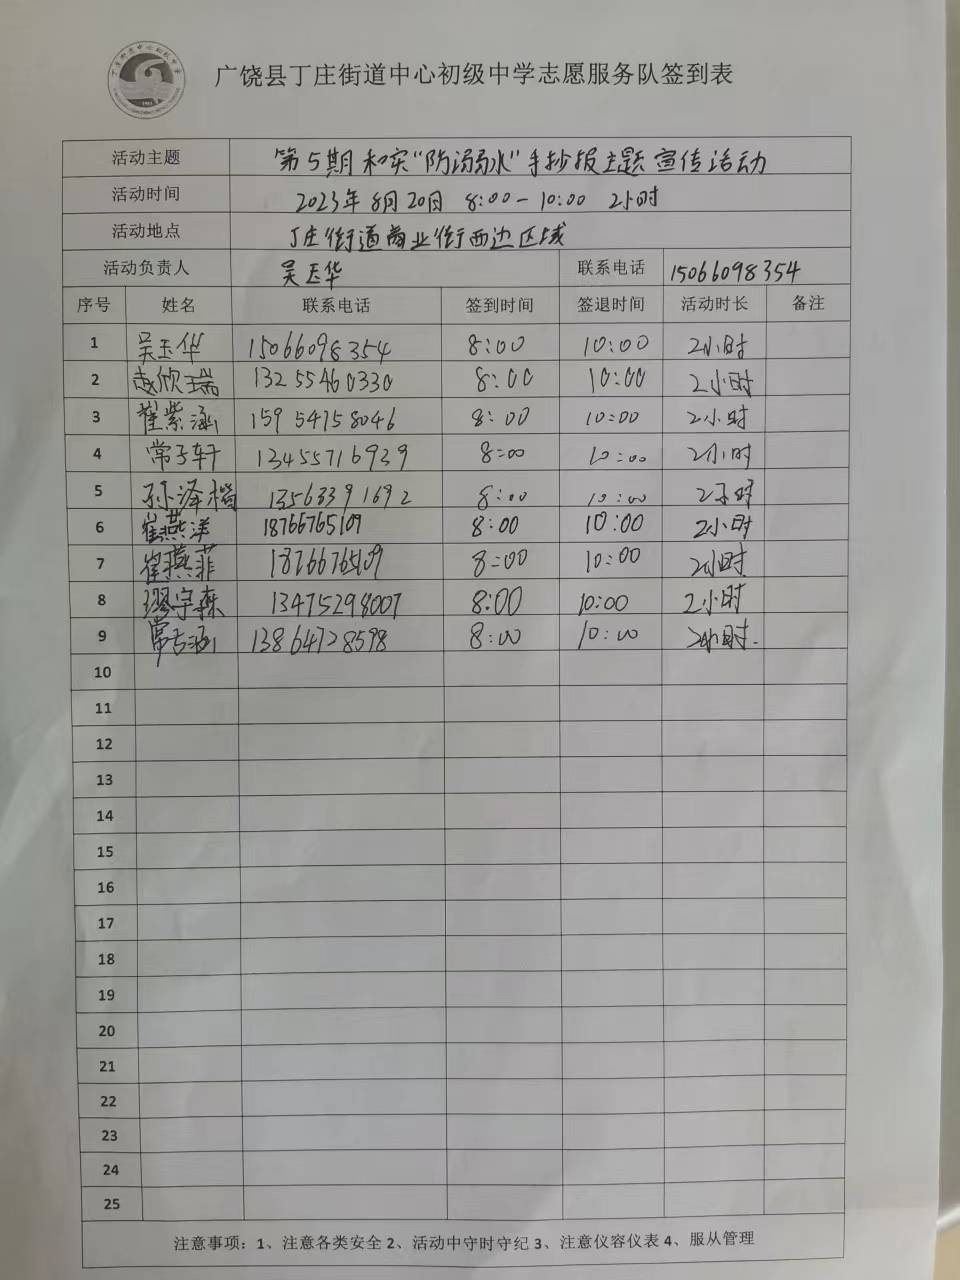 广饶县丁庄街道中心初级中学志愿服务队签到表
活动主题 第5期和实"防溺水"手抄报主题宣传活动
活动时间 2023年8月20日 8:00-10:00 2小时
活动地点 丁庄街道商业街西边区域
活动负责人 吴玉华 联系电话 15066098354
序号 姓名 联系电话 签到时间 签退时间 活动时长 备注
1 吴玉华 15066098354 8:00 10:00 2小时
2 赵欣瑞 13255460330 8:00 10:00 2小时
3 崔紫涵 15954758046 8:00 10:00 2小时
4 常子轩 13455716939 8:00 10:00 2小时
5 孙泽楷 13563391692 8:00 10:00 2小时
6 崔燕洋 18766765109 8:00 10:00 2小时
7 崔燕菲 18766765109 8:00 10:00 2小时
8 缪宇森 13475298007 8:00 10:00 2小时
9 13864728598 8:00 10:00 2小时.
10
11
12
13
14
15
16
17
18
19
20
21
22
23
24
25
注意事项：1、注意各类安全 2、活动中守时守纪 3、注意仪容仪表 4、服从管理